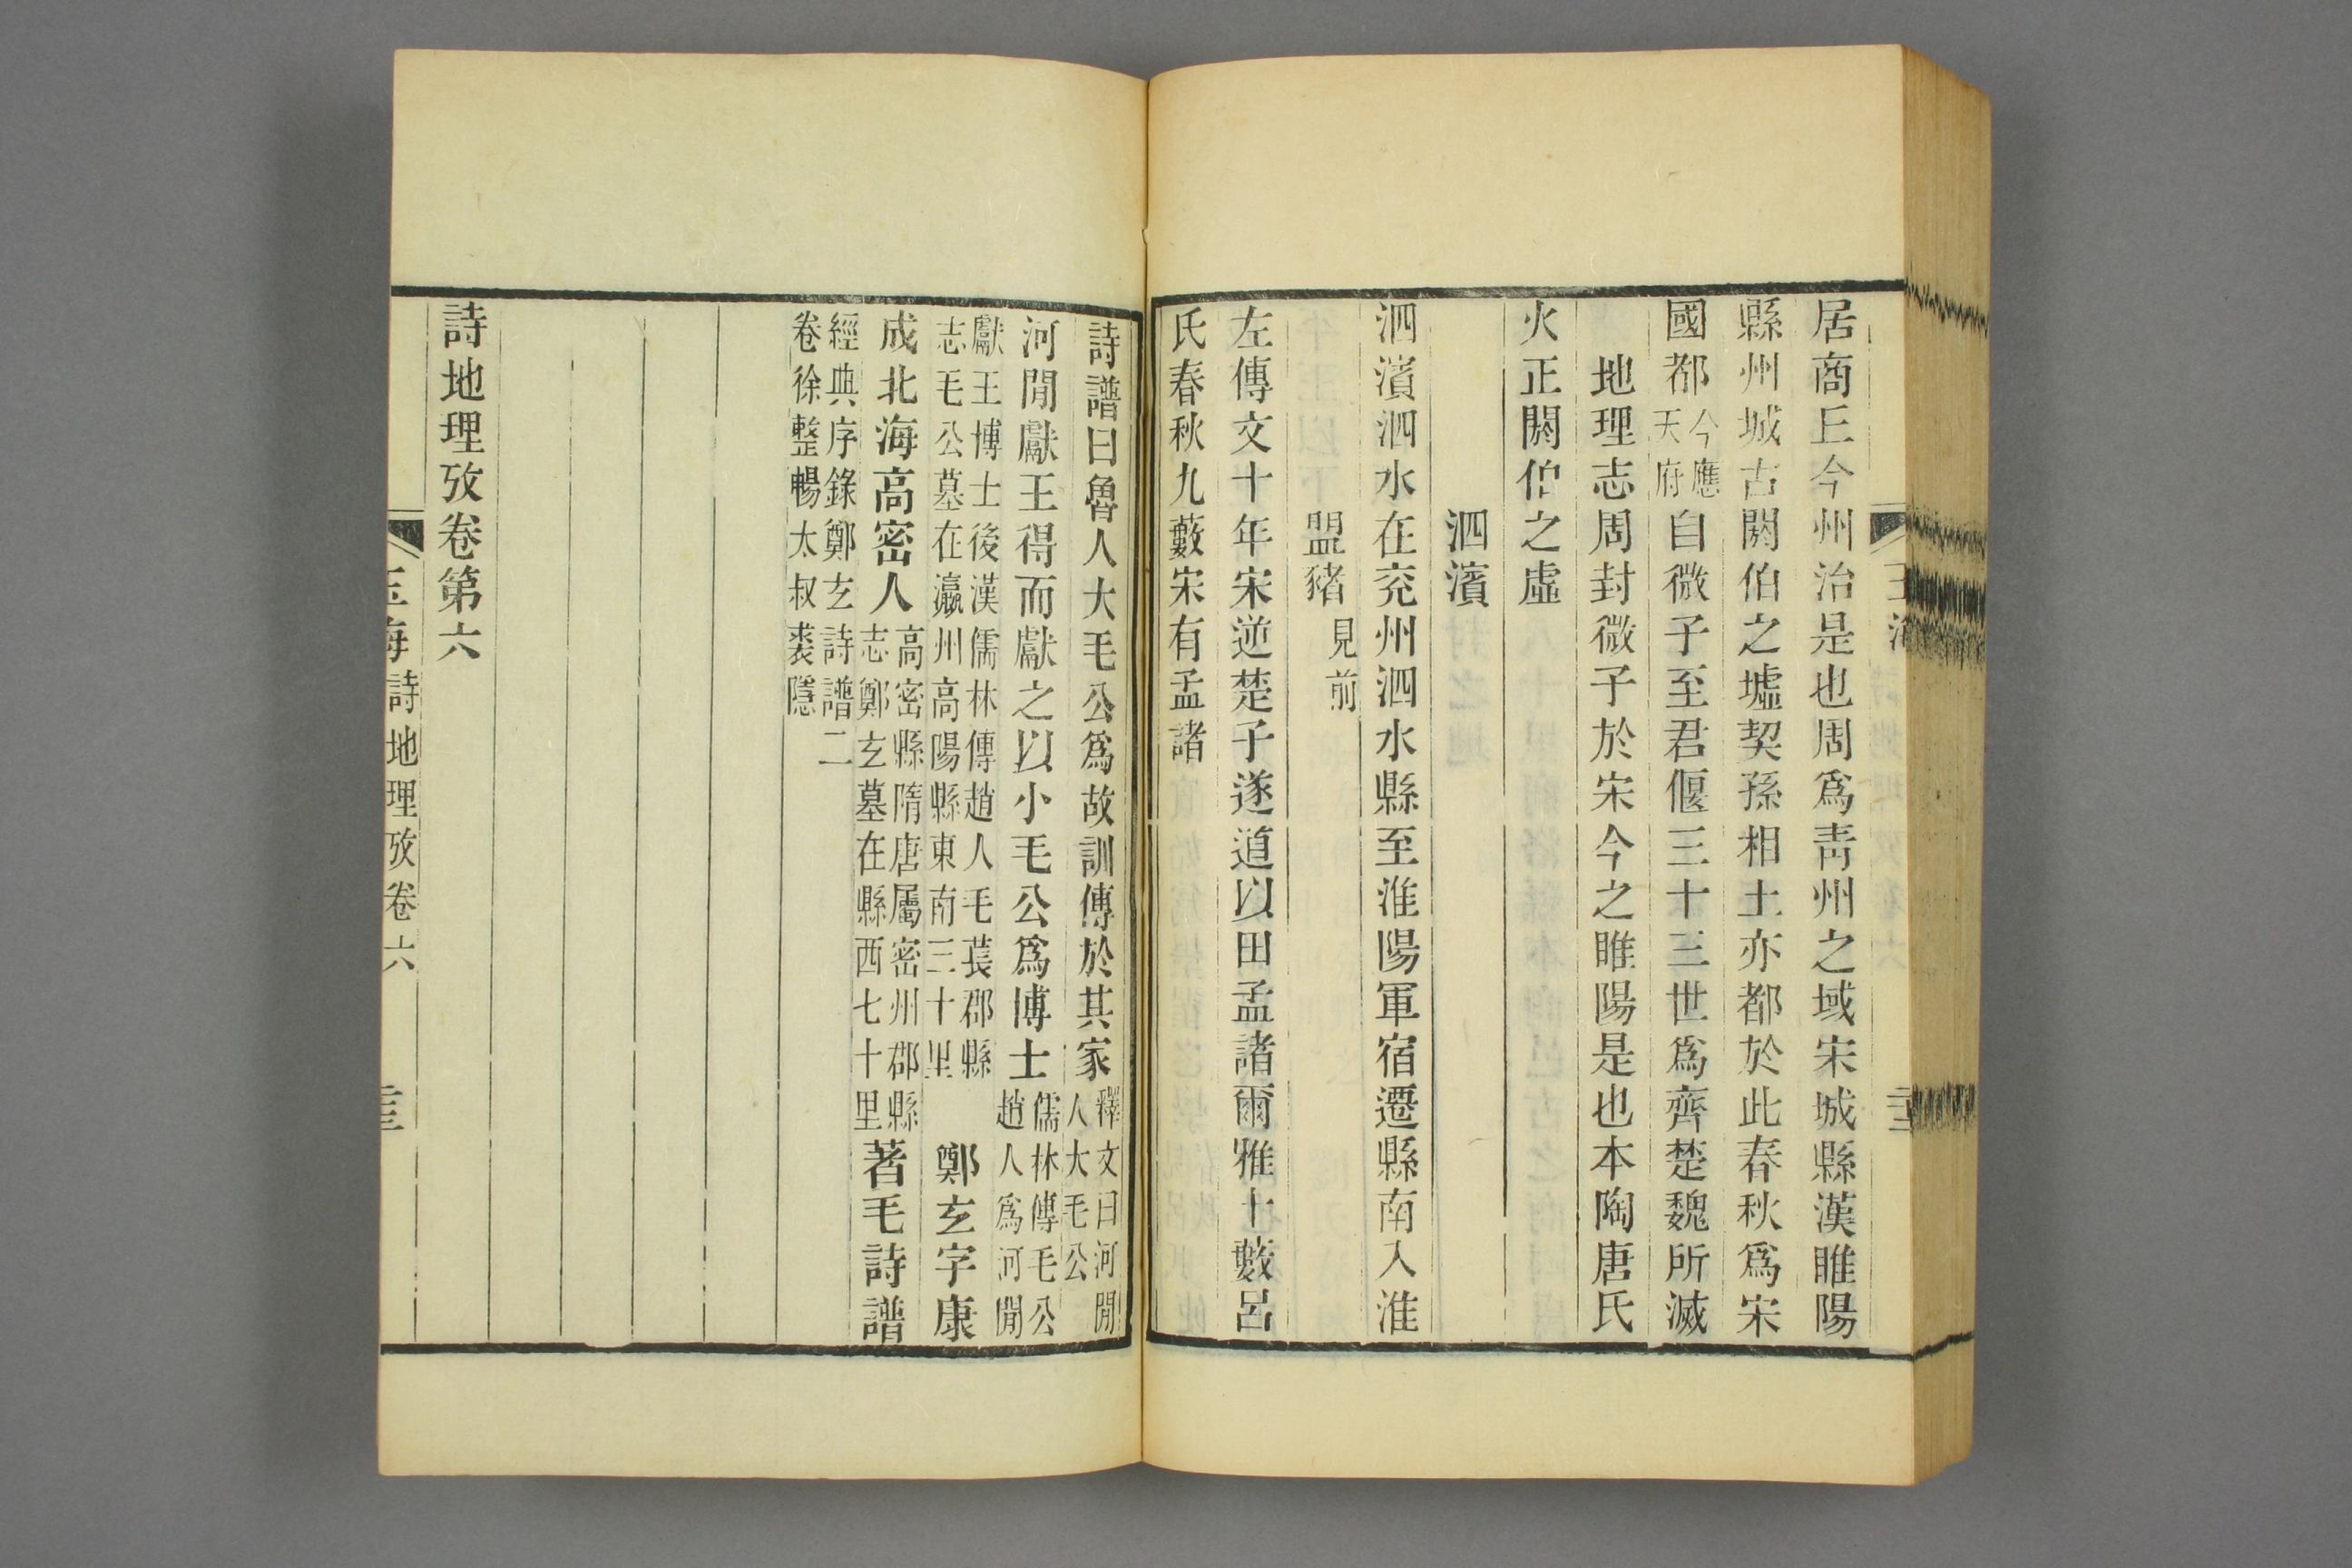 居商丘今州治是也周爲青州之域宋城縣漢睢陽
縣州城古閼伯之墟契孫相土亦都於此春秋爲宋
國都今應天府自微子至君偃三十三世爲齊楚魏所滅
地理志周封微子於宋今之睢陽是也本陶唐氏
火正閼伯之虛
泗濱
泗濱泗水在兖州泗水縣至淮陽軍宿遷縣南入淮
盟豬見前
左傳文十年宋逆楚子遂道以田孟諸爾雅十藪呂
氏春秋九藪宋有孟諸
詩譜曰魯人大毛公爲故訓傳於其家釋文曰河閒人大毛公
河閒獻王得而獻之以小毛公爲博士儒林傳毛公趙人爲河閒
獻王博士後漢儒林傳趙人毛萇郡縣志毛公墓在瀛州高陽縣東南三十里鄭玄字康
成北海高密人高密縣隋唐屬密州郡縣志鄭玄墓在縣西七十里著毛詩譜
經典序錄鄭玄詩譜二卷徐整暢太叔裘隱
詩地理攷卷第六
玉海詩地理攷卷六